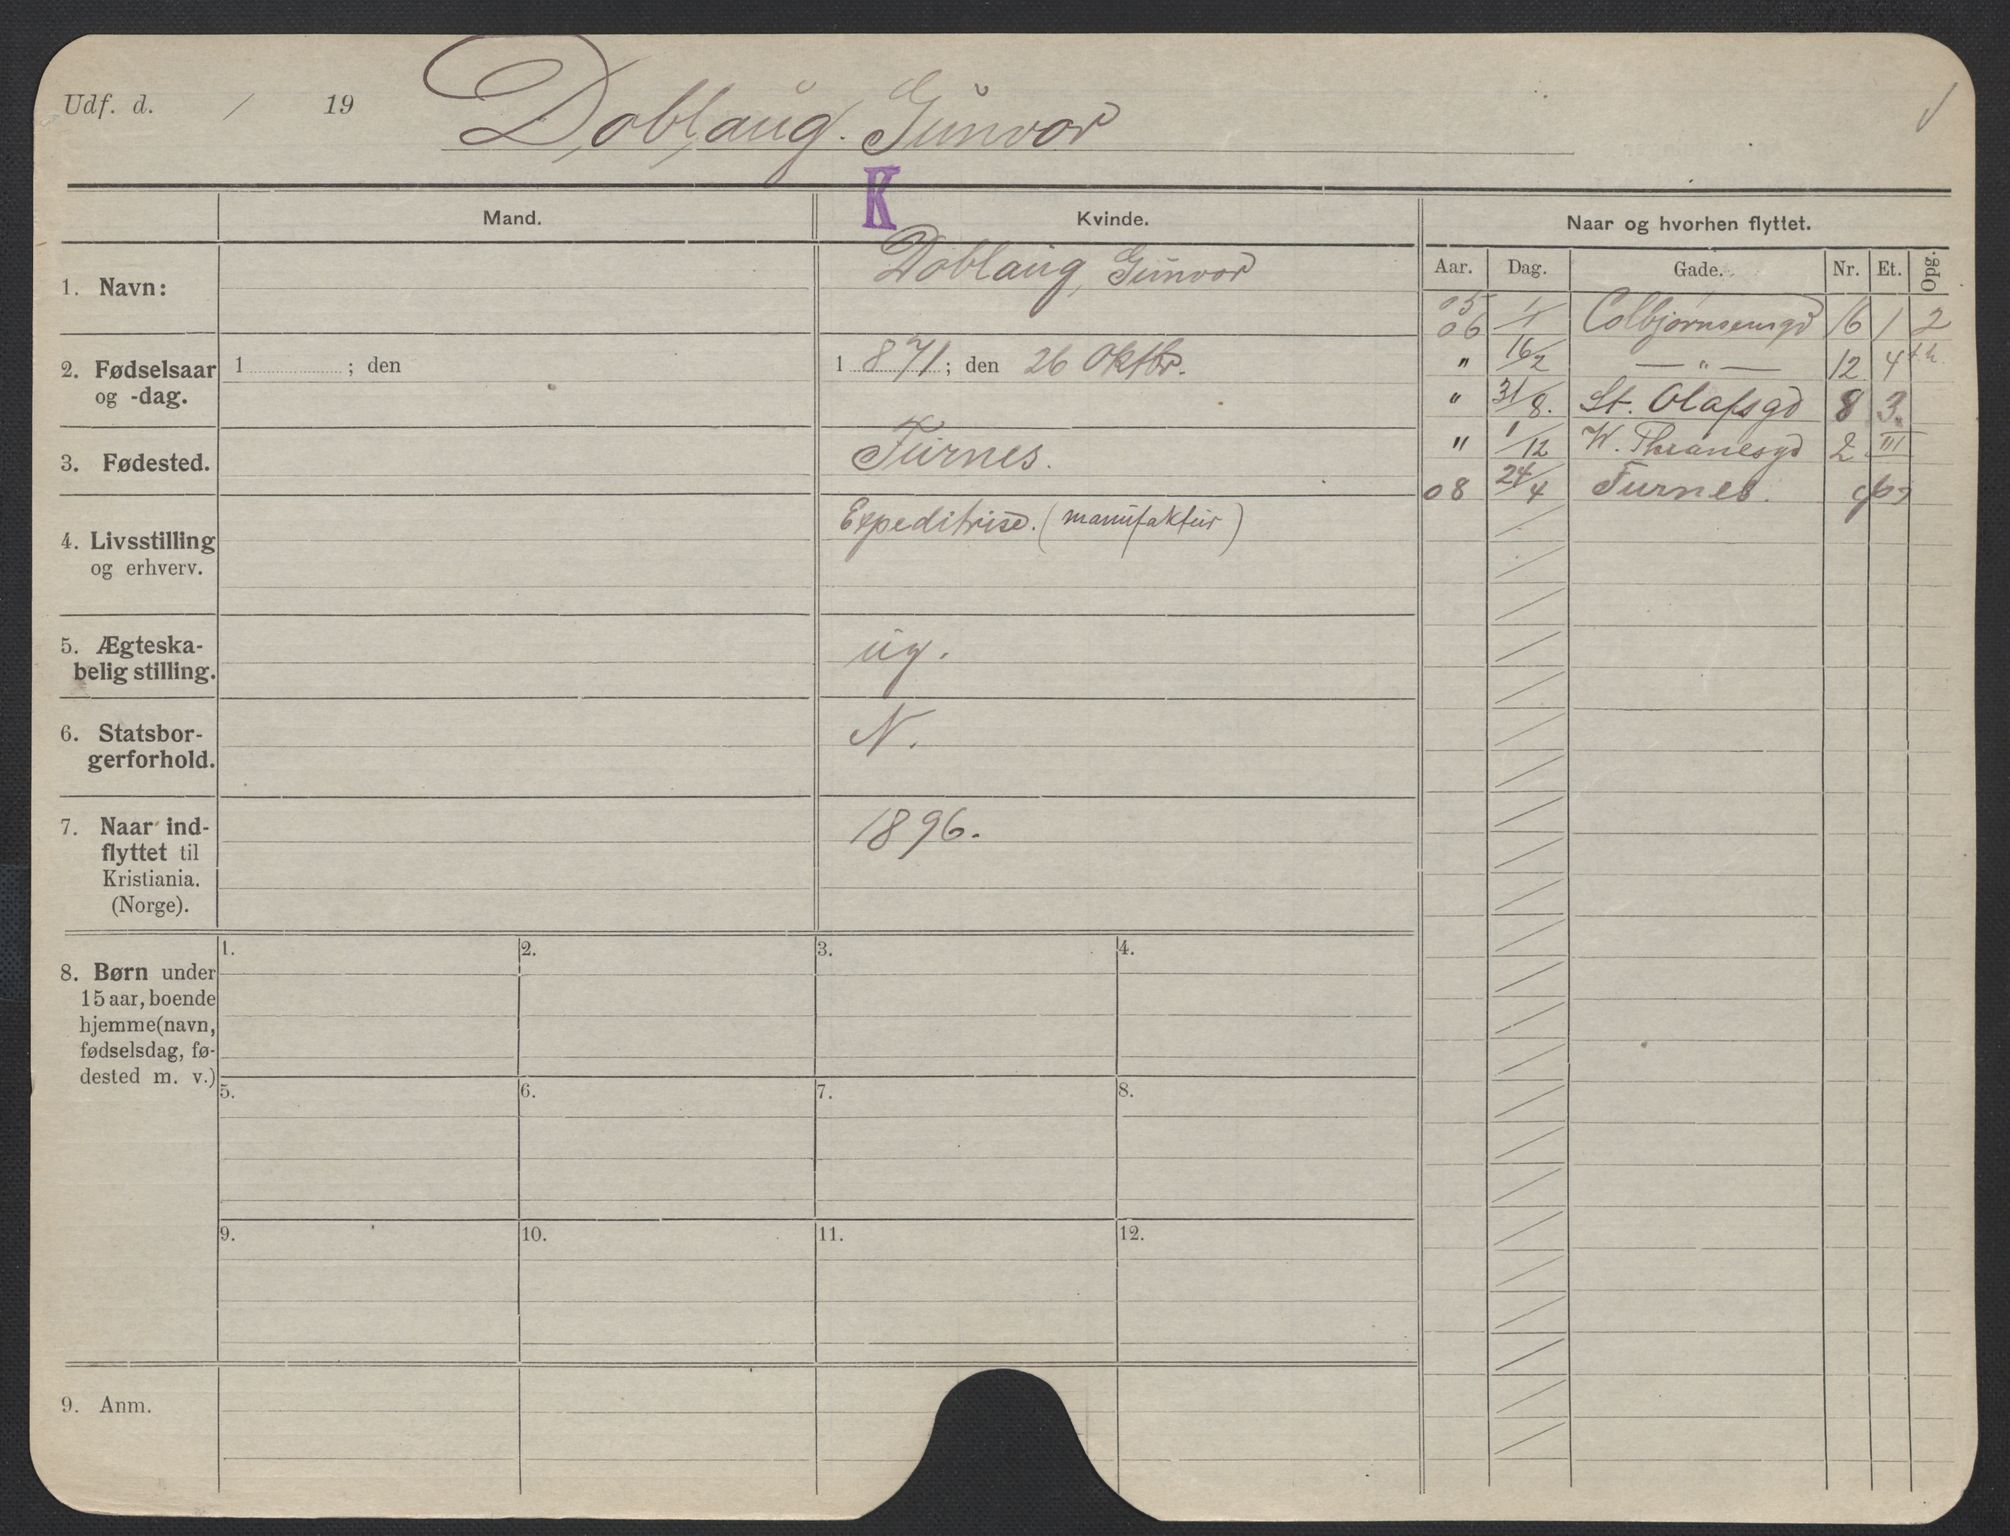 Udf. d. / 19 Doblaug. Gunvor
K
Mand. Kvinde. Naar og hvorhen flyttet.
Aar. Dag. Gade. Nr. Et. Opg.
1. Navn: Doblaug, Gunvor
2. Fødselsaar 1 ; den 1 871; den 26 Oktbr.
og -dag.
3. Fødested. Furnes.
4. Livsstilling Expeditrise. (manufaktur)
og erhverv.
5. Ægteska-
belig stilling. ug.
6. Statsbor-
gerforhold. N.
7. Naar ind-
flyttet til
Kristiania.
(Norge).
1896.
05
06 1/1 Colbjørnsensgd 16 1 2
" 16/2 — " — 12 4 t.h.
" 31/8. St. Olafsgd 8 3.
" 1/12 W. Thranesgd 2 III
08 24/4 Furnes.
8. Børn under
15 aar, boende
hjemme (navn,
fødselsdag, fø-
dested m. v.)
1. 2. 3. 4.
5. 6. 7. 8.
9. 10. 11. 12.
9. Anm.